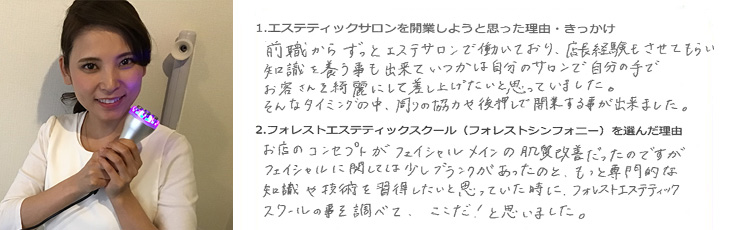 1.エステティックサロンを開業しようと思った理由・きっかけ
前職からずっとエステサロンで働いており、店長経験もさせてもらい
知識を養う事も出来ていつかは自分のサロンで自分の手で
お客さんを綺麗にして差し上げたいと思っていました。
そんなタイミングの中、周りの協力や後押しで開業する事が出来ました。
2.フォレストエステティックスクール（フォレストシンフォニー）を選んだ理由
お店のコンセプトがフェイシャルメインの肌質改善だったのですが
フェイシャルに関しては少しブランクがあったのと、もっと専門的な
知識や技術を習得したいと思っていた時に、フォレストエステティック
スクールの事を調べて、ここだ!と思いました。